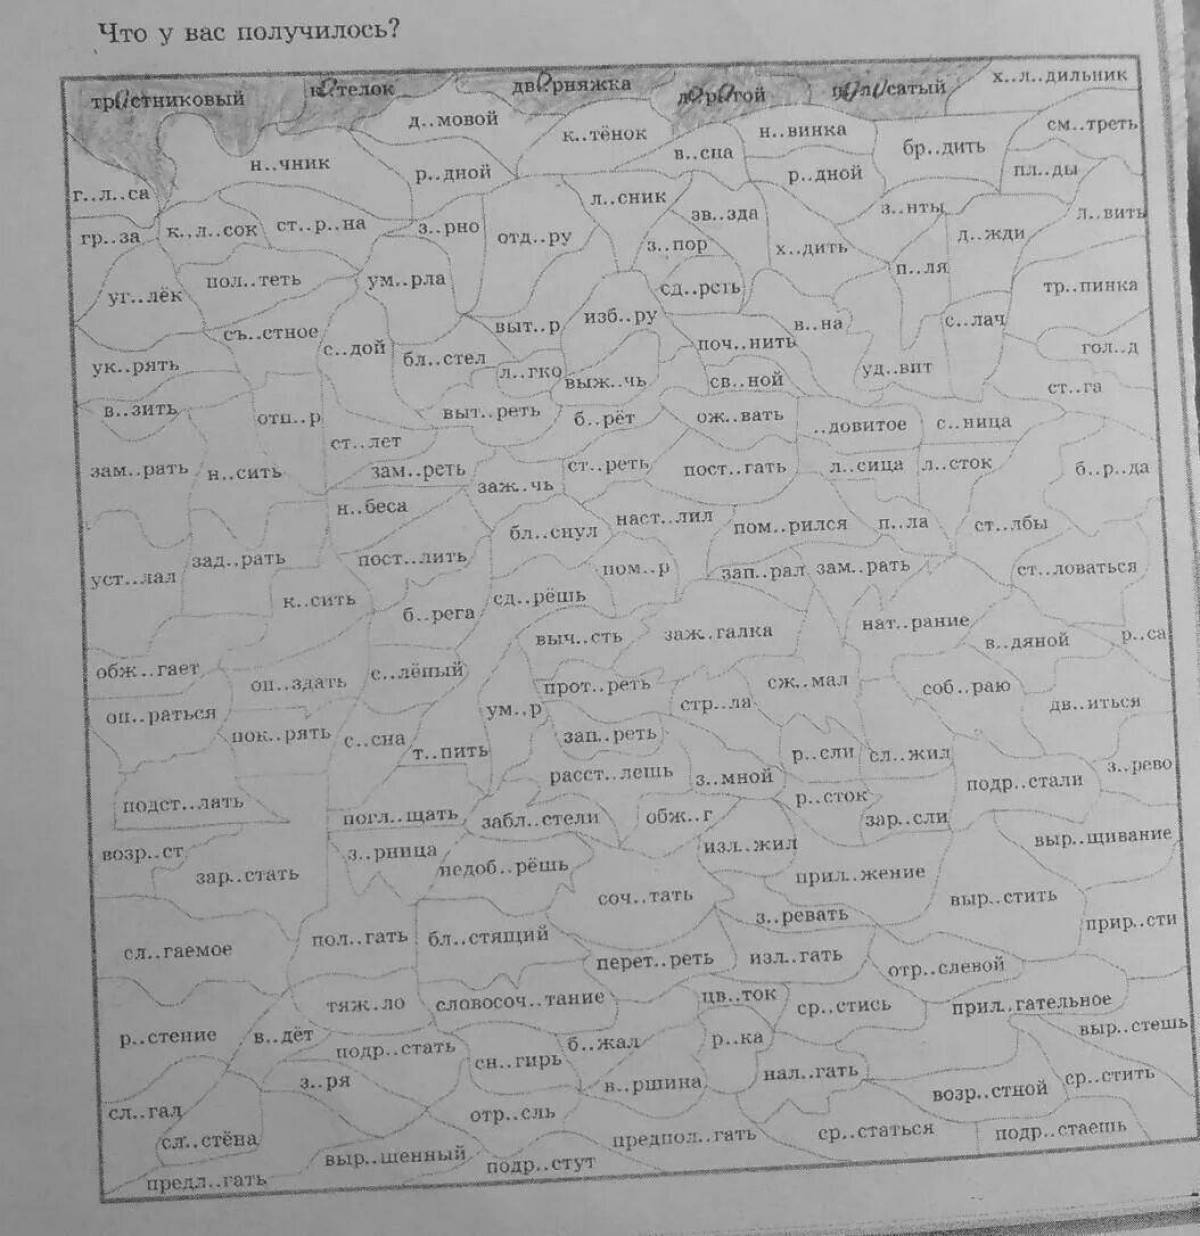 Что у вас получилось?
тростниковый котелок дворняжка дорогой полосатый х..л..дильник
д..мовой к..тёнок н..винка бр..дить см..треть
н..чник р..дной в..сна р..дной пл..ды
г..л..са л..сник зв..зда з..нты л..вить
гр..за к..л..сок ст..р..на з..рно отд..ру з..пор х..дить д..жди
уг..лёк пол..теть ум..рла сд..реть п..ля тр..пинка
съ..стное выт..р изб..ру в..на с..лач
ук..рять с..дой бл..стел л..гко выж..чь поч..нить уд..вит гол..д
в..зить отп..р выт..реть б..рёт св..ной ож..вать ..довитое с..ница ст..га
зам..рать н..сить ст..лет зам..реть заж..чь ст..реть пост..гать л..сица л..сток б..р..да
н..беса бл..снул наст..лил пом..рился п..ла ст..лбы
уст..лал зад..рать пост..лить пом..р зап..рал зам..рать ст..ловаться
к..сить б..рега сд..рёшь
выч..сть заж..галка нат..рание в..дяной р..са
обж..гает оп..здать с..лёный прот..реть сж..мал соб..раю
оп..раться ум..р стр..ла дв..иться
пок..рять с..сна т..пить зап..реть р..сли сл..жил
подст..лать расст..лешь з..мной подр..стали з..рево
погл..щать забл..стели обж..г р..сток зар..сли
возр..ст з..рница недоб..рёшь изл..жил выр..щивание
зар..стать соч..тать прил..жение выр..стить
сл..гаемое пол..гать бл..стящий з..ревать прир..сти
перет..реть изл..гать отр..слевой
тяж..ло словосоч..тание цв..ток ср..стись прил..гательное
р..стение в..дёт подр..стать б..жал р..ка выр..стешь
з..ря сн..гирь в..ршина нал..гать возр..стной ср..стить
сл..гал отр..сль
сл..стёна предпол..гать ср..статься подр..стаешь
выр..щенный подр..стут
предл..гать